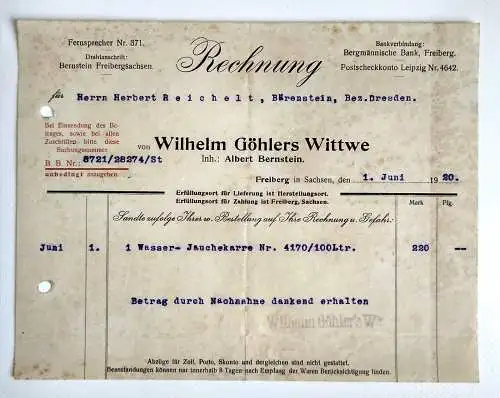 Fernsprecher Nr. 371.
Drahtanschrift:
Bernstein Freibergsachsen.
Rechnung
Bankverbindung:
Bergmännische Bank, Freiberg.
Postscheckkonto Leipzig Nr. 4642.
für Herrn Herbert Reichelt, Bärenstein, Bez.Dresden.
Bei Einsendung des Be-
trages, sowie bei allen
Zuschriften bitte diese
Buchungsnummer
B. B Nr.: 8721/28274/St
unbedingt anzugeben
von Wilhelm Göhlers Wittwe
Inh.: Albert Bernstein.
Freiberg in Sachsen, den 1. Juni 1920.
Erfüllungsort für Lieferung ist Herstellungsort.
Erfüllungsort für Zahlung ist Freiberg, Sachsen.
Mark Pfg.
Sandte zufolge Ihrer w. Bestellung auf Ihre Rechnung u. Gefahr:
Juni 1. 1 Wasser- Jauchekarre Nr. 4170/100Ltr. 220 --
Betrag durch Nachnahme dankend erhalten
Wilhelm Göhler's W
Abzüge für Zoll, Porto, Skonto und dergleichen sind nicht gestattet.
Beanstandungen können nur innerhalb 8 Tagen nach Empfang der Waren Berücksichtigung finden.